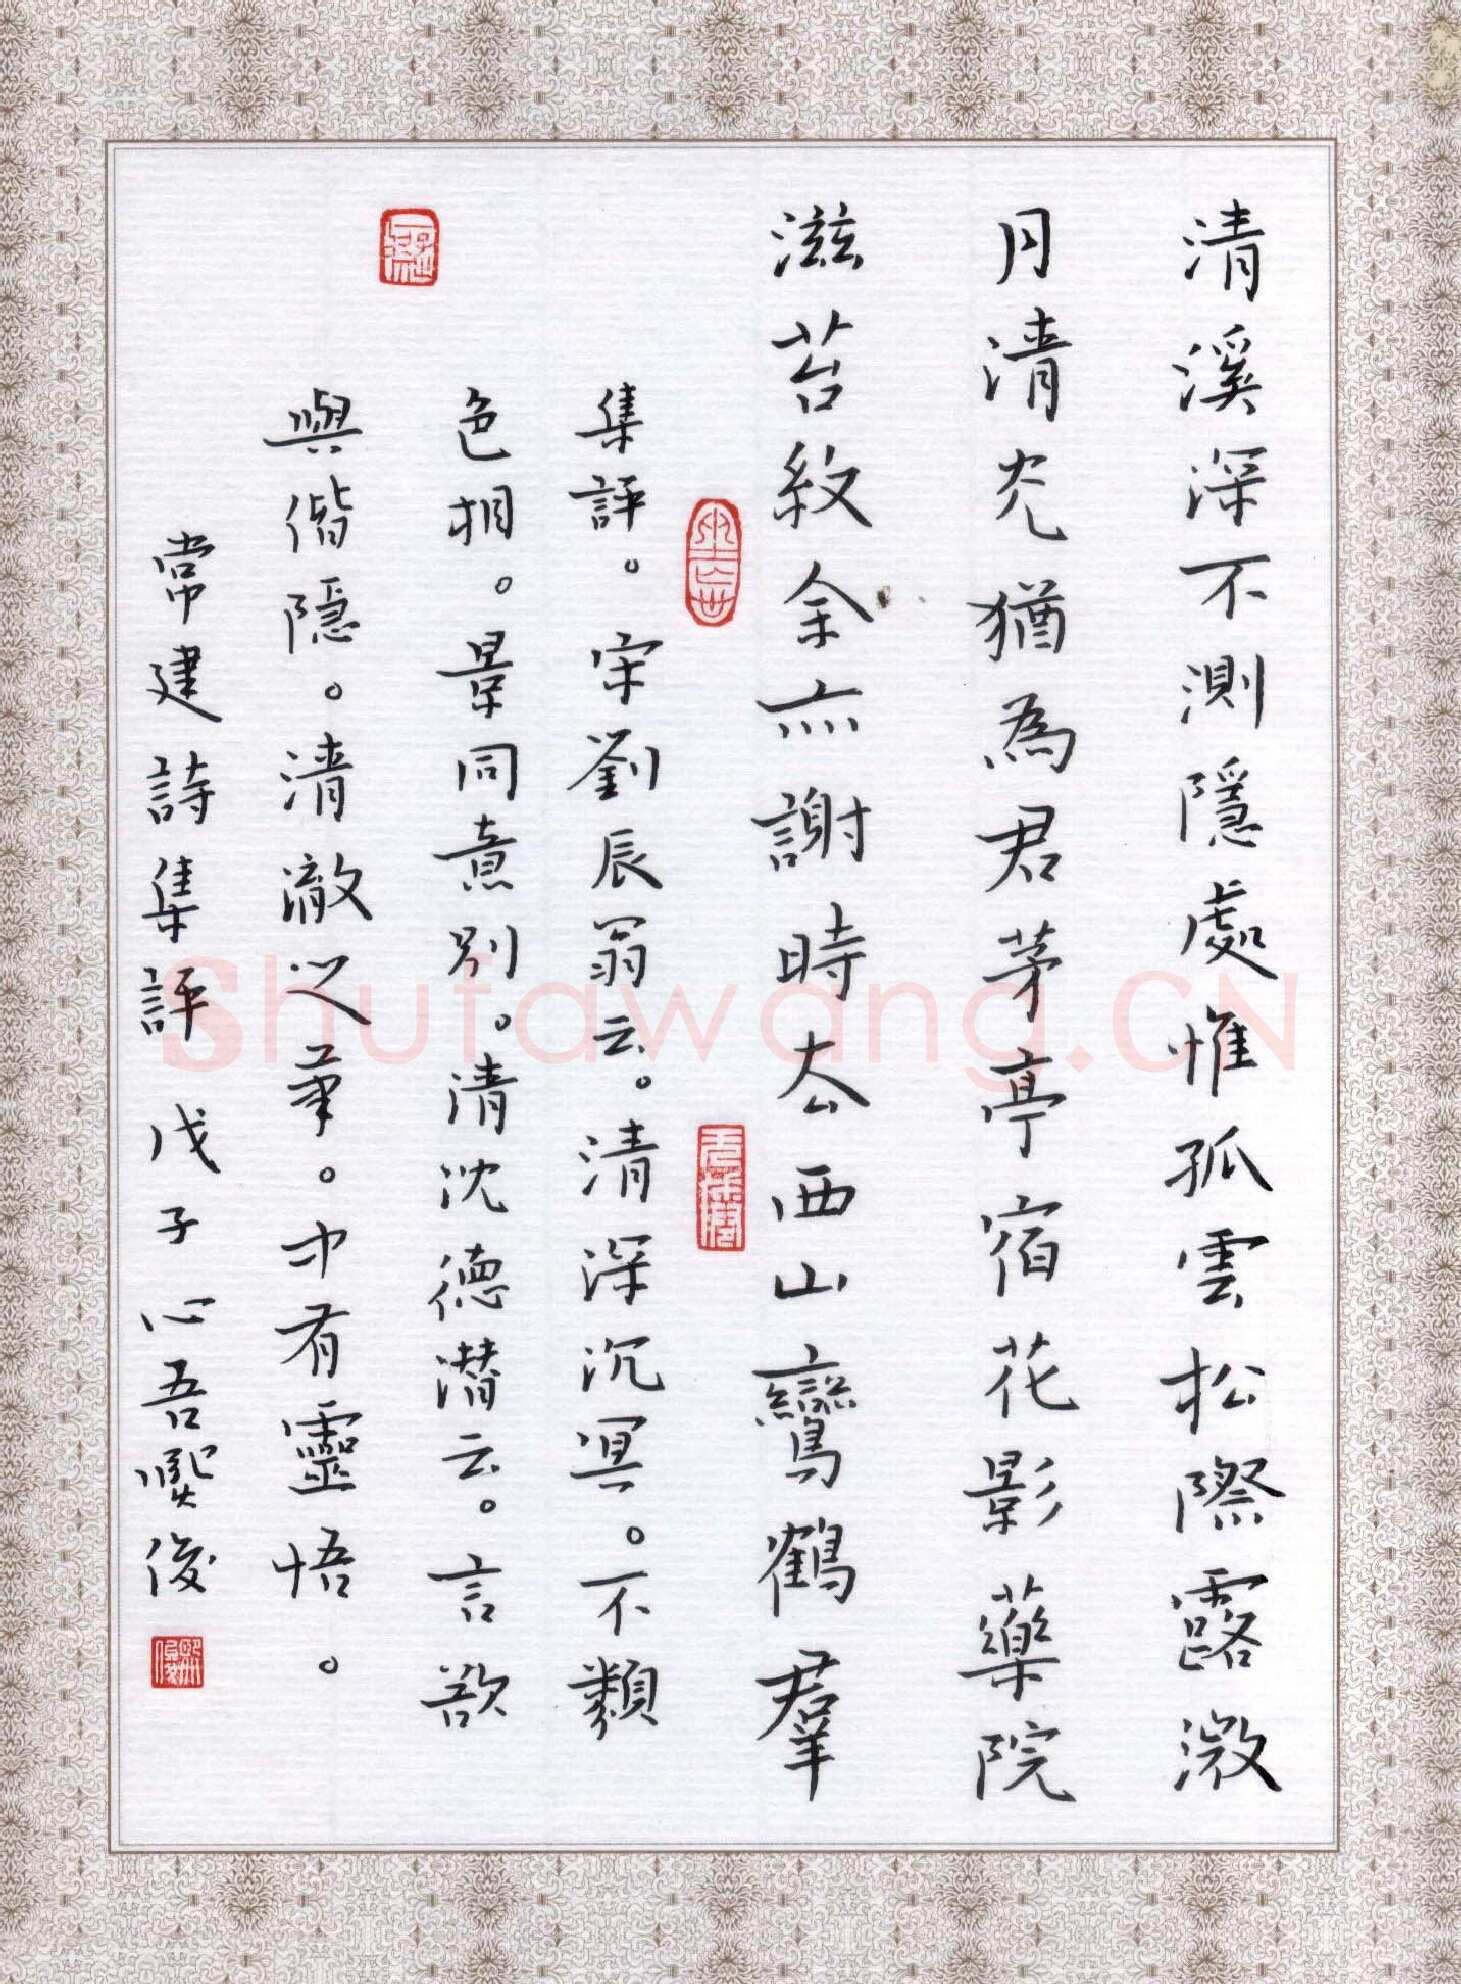 清溪深不測隱處惟孤雲松際露微
月清光猶為君茅亭宿花影藥院
滋苔紋余亦謝時去西山鸞鶴羣
集評。宋劉辰翁云。清深沉冥。不類
色相。景同意別。清沈德潜云。言欲
與偕隱。清澈之筆。中有靈悟。
常建詩集評 戊子心吾熙俊
Shufawang.CN